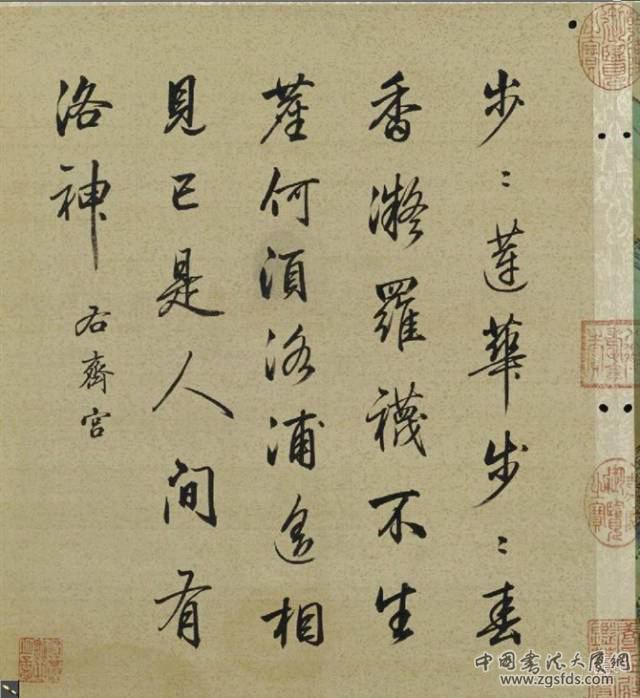 步:蓮華步:春
香凝羅襪不生
塵何須洛浦遙相
見已是人間有
洛神
右齊宮
中國書法大廈網
www.zgsfds.com